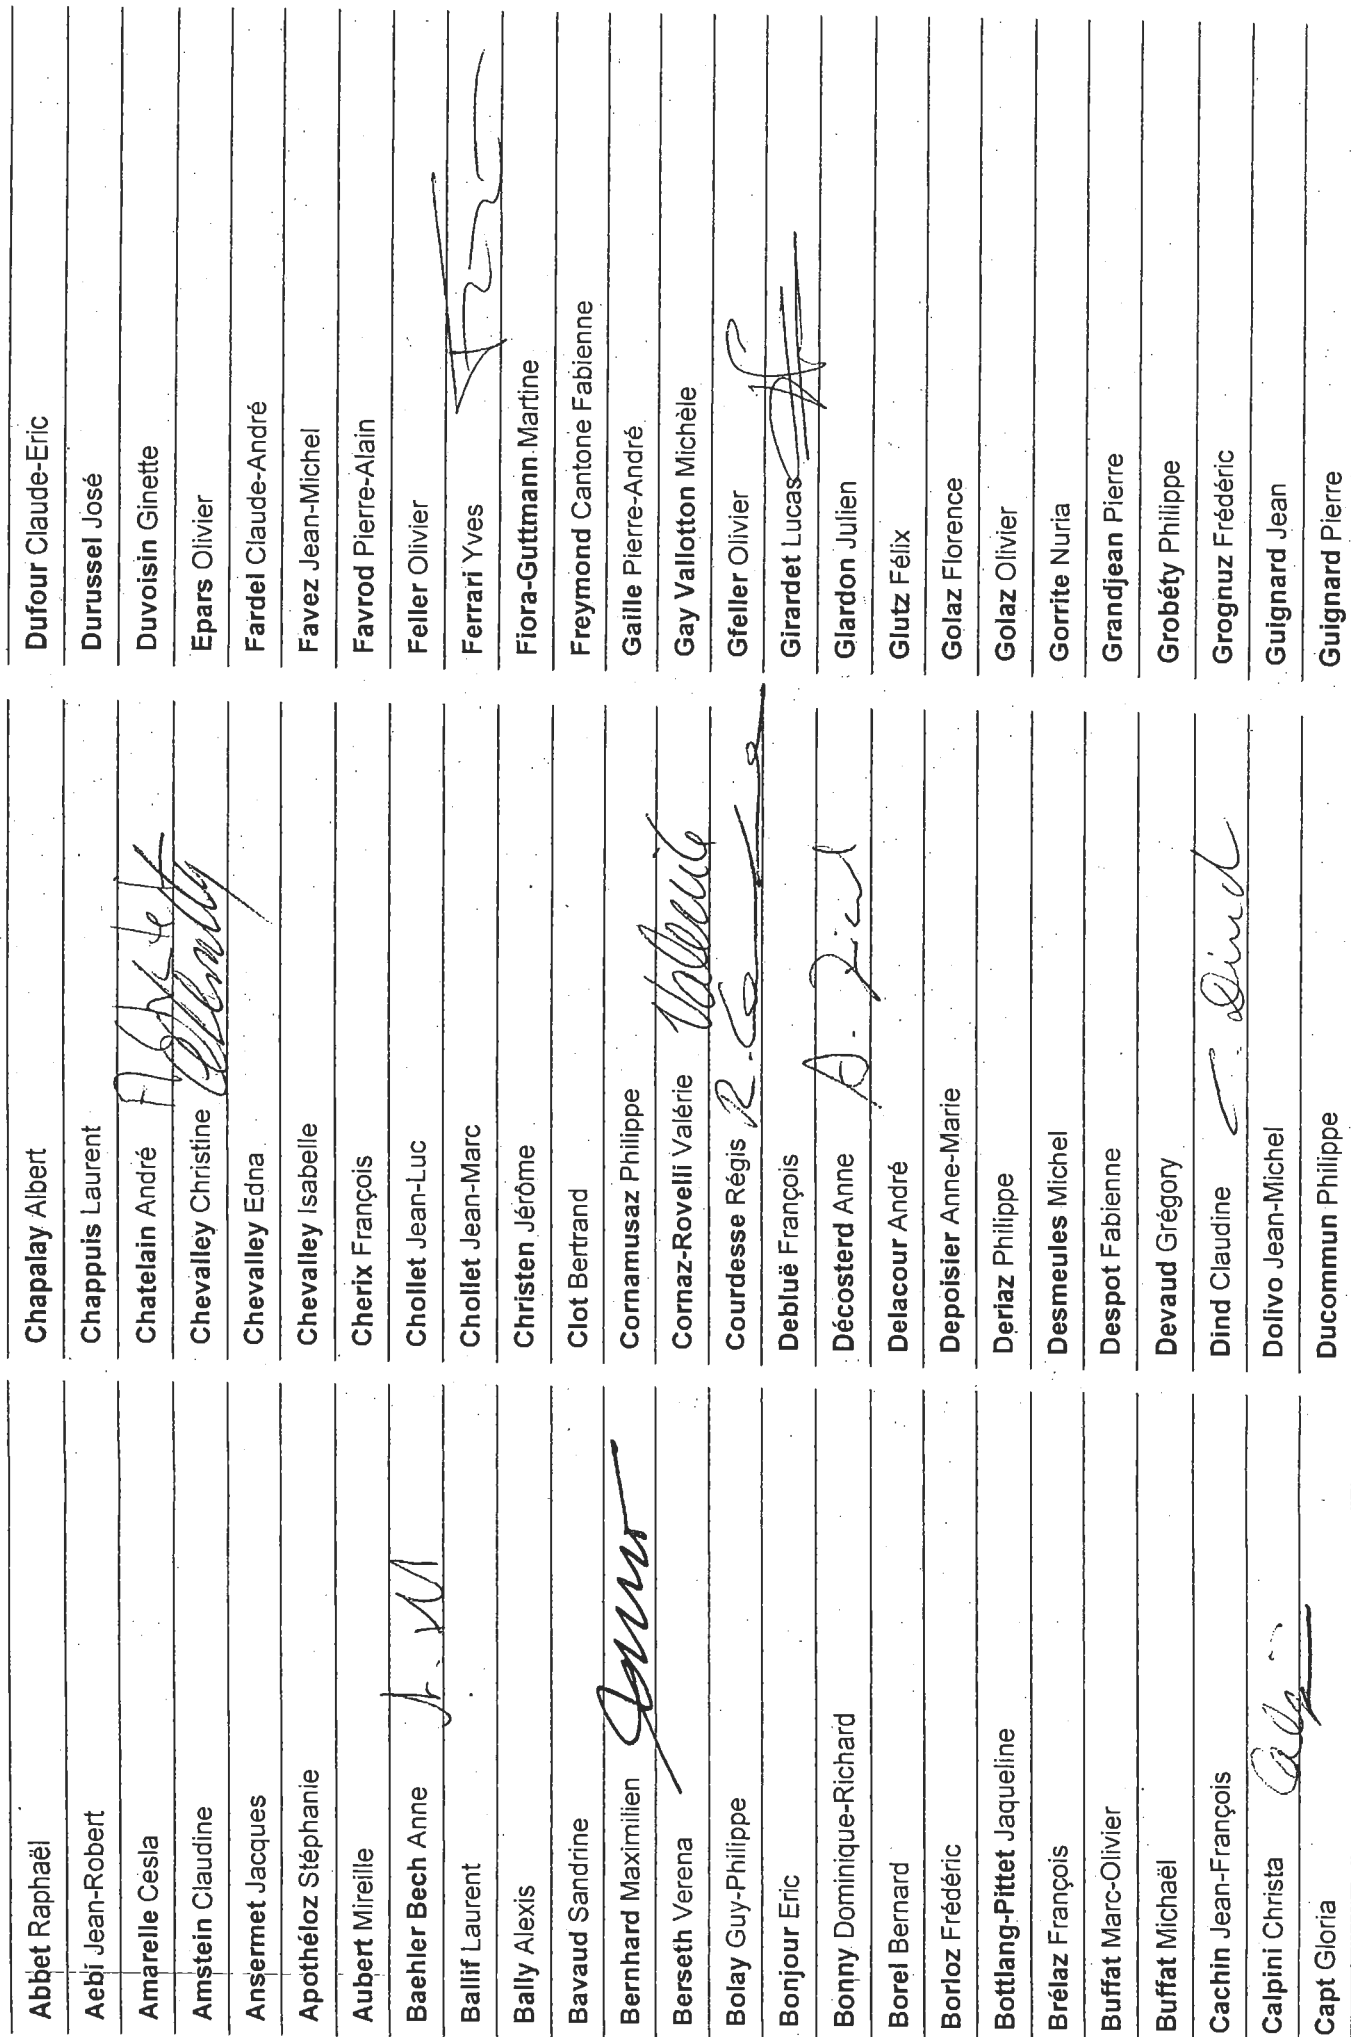 Abbet Raphaël
Aebi Jean-Robert
Amarelle Cesla
Amstein Claudine
Ansermet Jacques
Apothéloz Stéphanie
Aubert Mireille
Baehler Bech Anne
Ballif Laurent
Bally Alexis
Bavaud Sandrine
Bernhard Maximilien
Berseth Verena
Bolay Guy-Philippe
Bonjour Eric
Bonny Dominique-Richard
Borel Bernard
Borloz Frédéric
Bottlang-Pittet Jaqueline
Brélaz François
Buffat Marc-Olivier
Buffat Michaël
Cachin Jean-François
Calpini Christa
Capt Gloria
Chapalay Albert
Chappuis Laurent
Chatelain André
Chevalley Christine
Chevalley Edna
Chevalley Isabelle
Cherix François
Chollet Jean-Luc
Chollet Jean-Marc
Christen Jérôme
Clot Bertrand
Cornamusaz Philippe
Cornaz-Rovelli Valérie
Courdesse Régis
Debluë François
Décosterd Anne
Delacour André
Depoisier Anne-Marie
Deriaz Philippe
Desmeules Michel
Despot Fabienne
Devaud Grégory
Dind Claudine C. Dind
Dolivo Jean-Michel
Ducommun Philippe
Dufour Claude-Eric
Durussel José
Duvoisin Ginette
Epars Olivier
Fardel Claude-André
Favez Jean-Michel
Favrod Pierre-Alain
Feller Olivier
Ferrari Yves
Fiora-Guttmann Martine
Freymond Cantone Fabienne
Gaille Pierre-André
Gay Vallotton Michèle
Gfeller Olivier
Girardet Lucas
Glardon Julien
Glutz Félix
Golaz Florence
Golaz Olivier
Gorrite Nuria
Grandjean Pierre
Grobéty Philippe
Grognuz Frédéric
Guignard Jean
Guignard Pierre